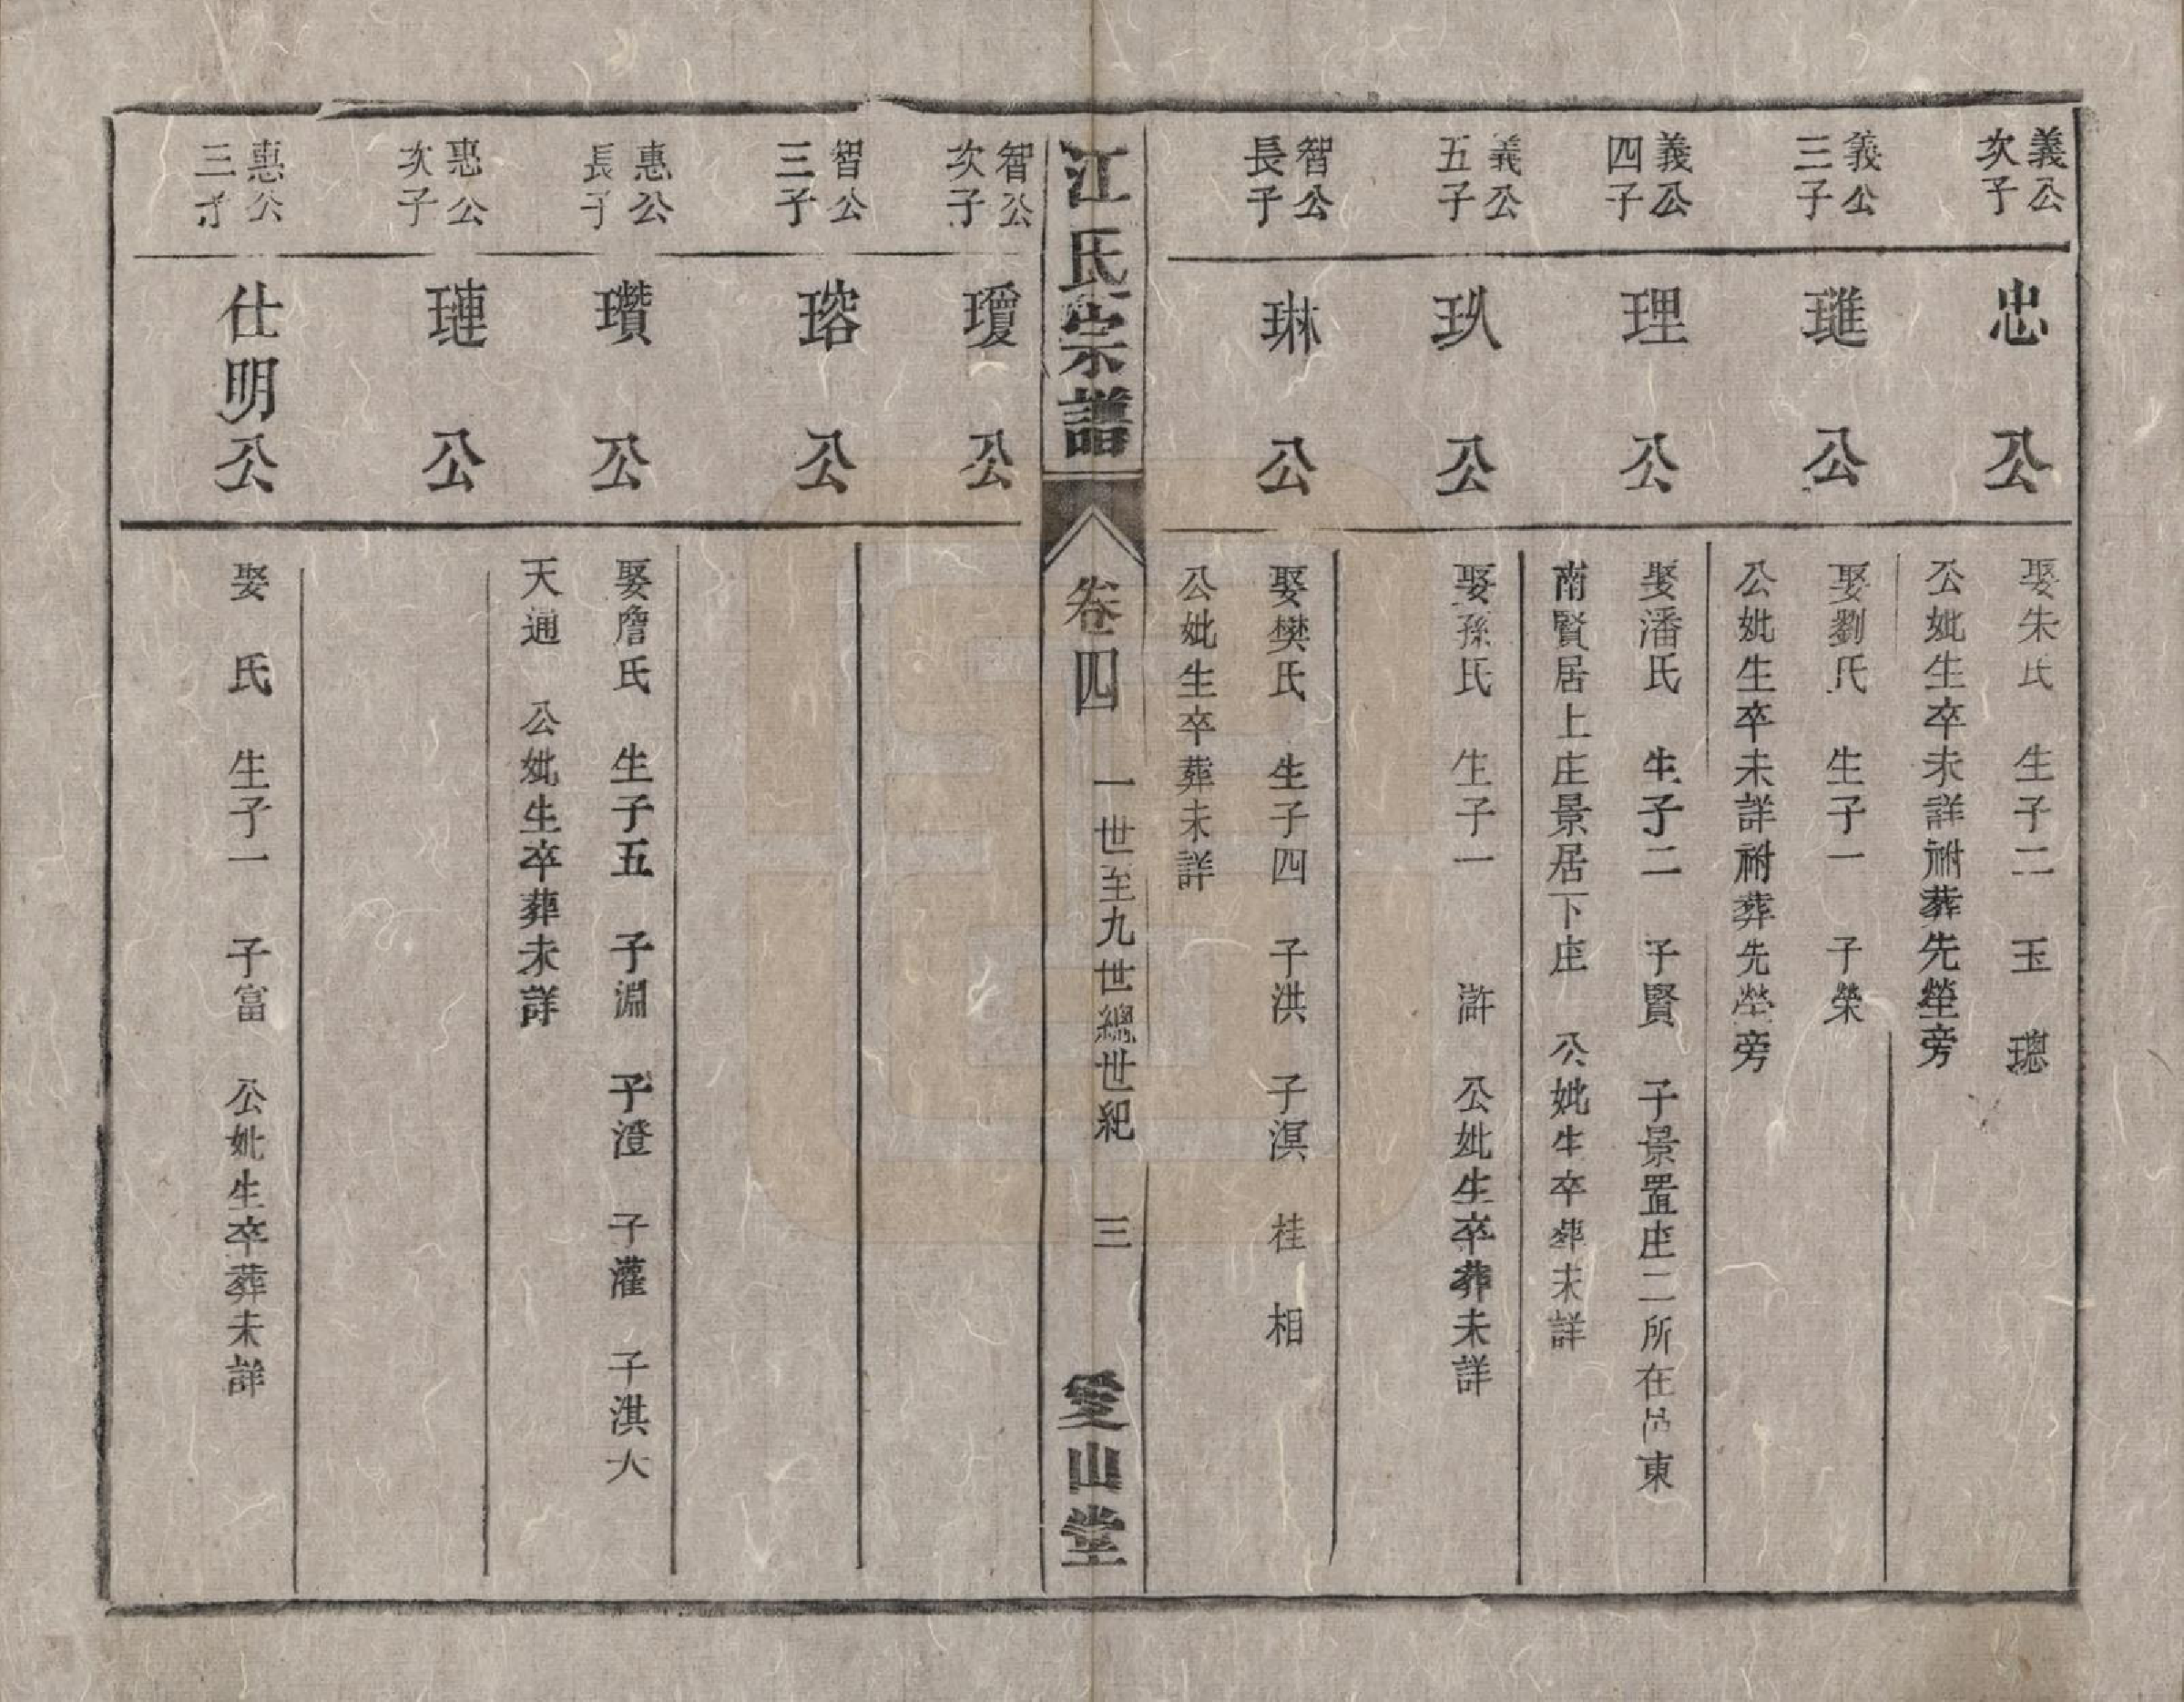 義公
次子
忠公
娶朱氏 生子二 玉 璁
公妣生卒未詳祔葬先塋旁
義公
三子
璡公
娶劉氏 生子一 子榮
公妣生卒未詳祔葬先塋旁
義公
四子
理公
娶潘氏 生子二 子賢 子景置庄二所在邑東
南賢居上庄景居下庄 公妣生卒葬未詳
義公
五子
玖公
娶孫氏 生子一 滸 公妣生卒葬未詳
智公
長子
琳公
娶樊氏 生子四 子洪 子溟 桂 相
公妣生卒葬未詳
江氏宗譜
卷四 一世至九世總世紀 三
愛山堂
智公
次子
瓊公
智公
三子
瑢公
惠公
長子
瓚公
娶詹氏 生子五 子淵 子澄 子灌 子淇大
天通 公妣生卒葬未詳
惠公
次子
璉公
惠公
三子
仕明公
娶 氏 生子一 子富 公妣生卒葬未詳